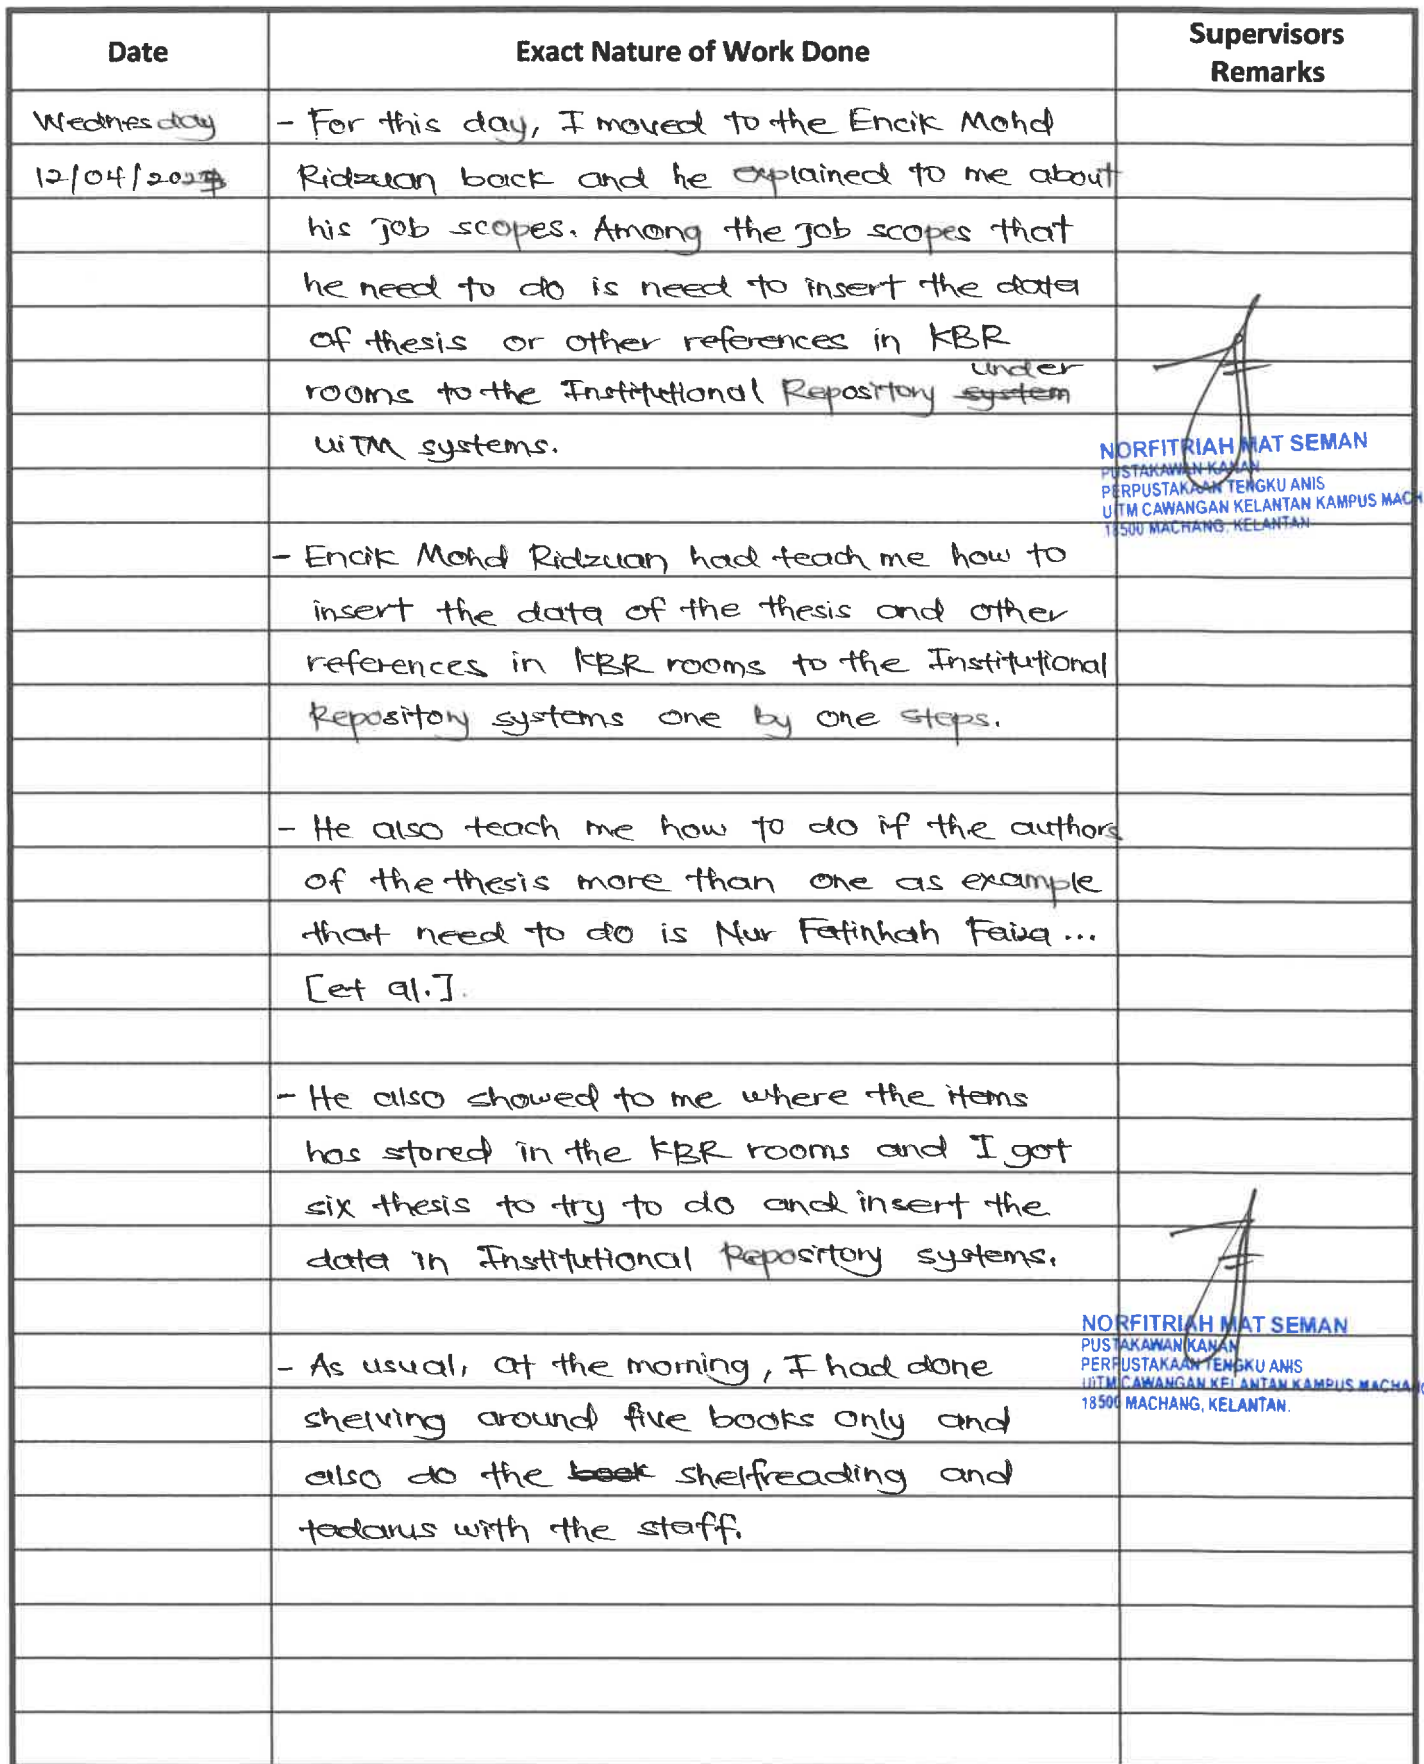 Date
Exact Nature of Work Done
Supervisors
Remarks
Wednesday
- For this day, I moved to the Encik Mohd
12/04/2023
Ridzuan back and he explained to me about
his job scopes. Among the job scopes that
he need to do is need to insert the data
of thesis or other references in KBR
under
rooms to the Institutional Repository system
UiTM systems.
NORFITRIAH MAT SEMAN
PUSTAKAWAN KANAN
PERPUSTAKAAN TENGKU ANIS
UITM CAWANGAN KELANTAN KAMPUS MACH
18500 MACHANG, KELANTAN
- Encik Mohd Ridzuan had teach me how to
insert the data of the thesis and other
references in KBR rooms to the Institutional
Repository systems one by one steps.
- He also teach me how to do if the authors
of the thesis more than one as example
that need to do is Nur Fatinhah Faiza...
[et al.].
- He also showed to me where the items
has stored in the KBR rooms and I got
six thesis to try to do and insert the
data in Institutional Repository systems.
NORFITRIAH MAT SEMAN
PUSTAKAWAN KANAN
PERPUSTAKAAN TENGKU ANIS
UITM CAWANGAN KELANTAN KAMPUS MACHANG
18500 MACHANG, KELANTAN.
- As usual, at the morning, I had done
shelving around five books only and
also do the book shelfreading and
tadarus with the staff.